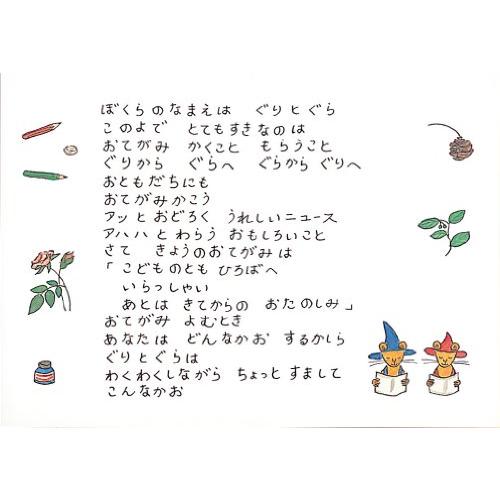 ぼくらのなまえは　ぐりとぐら
このよで　とてもすきなのは
おてがみ　かくこと　もらうこと
ぐりから　ぐらへ　ぐらから　ぐりへ
おともだちにも
おてがみかこう
アッと おどろく　うれしいニュース
アハハと わらう　おもしろいこと
さて　きょうのおてがみは
「こどものとも　ひろばへ
いらっしゃい
あとは　きてからの　おたのしみ」
おてがみ　よむとき
あなたは　どんなかお　するかしら
ぐりとぐらは
わくわくしながら　ちょっと すまして
こんなかお